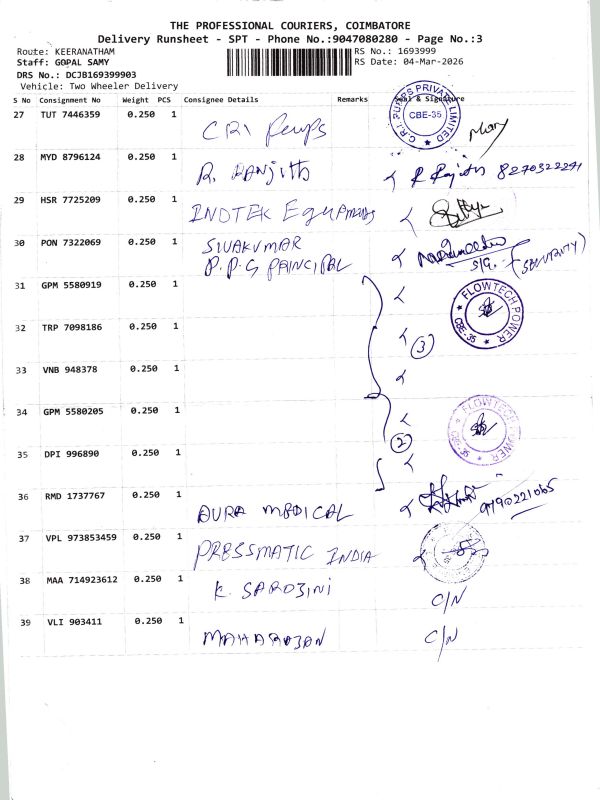 THE PROFESSIONAL COURIERS, COIMBATORE
Delivery Runsheet - SPT - Phone No.:9047080280 - Page No.:3
Route: KEERANATHAM
RS No.: 1693999
Staff: GOPAL SAMY
RS Date: 04-Mar-2026
DRS No.: DCJB169399903
Vehicle: Two Wheeler Delivery
S No Consignment No Weight PCS Consignee Details Remarks Seal & Signature
27 TUT 7446359 0.250 1 CRI Pumps
C.R.I. PUMPS PRIVATE LIMITED
CBE-35
28 MYD 8796124 0.250 1 R. RANJITH
29 HSR 7725209 0.250 1 INDTEK Equpments
30 PON 7322069 0.250 1 SIVAKUMAR
P.P.G PAINCIPAL
S/G. (SECURITY)
31 GPM 5580919 0.250 1
FLOWTECH POWER
CBE-35
32 TRP 7098186 0.250 1
3
33 VNB 948378 0.250 1
34 GPM 5580205 0.250 1
FLOWTECH POWER
2
35 DPI 996890 0.250 1
36 RMD 1737767 0.250 1 AURA MEDICAL
37 VPL 973853459 0.250 1 PRESSMATIC INDIA
38 MAA 714923612 0.250 1 K. SAROJINI C/N
39 VLI 903411 0.250 1 MAHARAJAN C/N